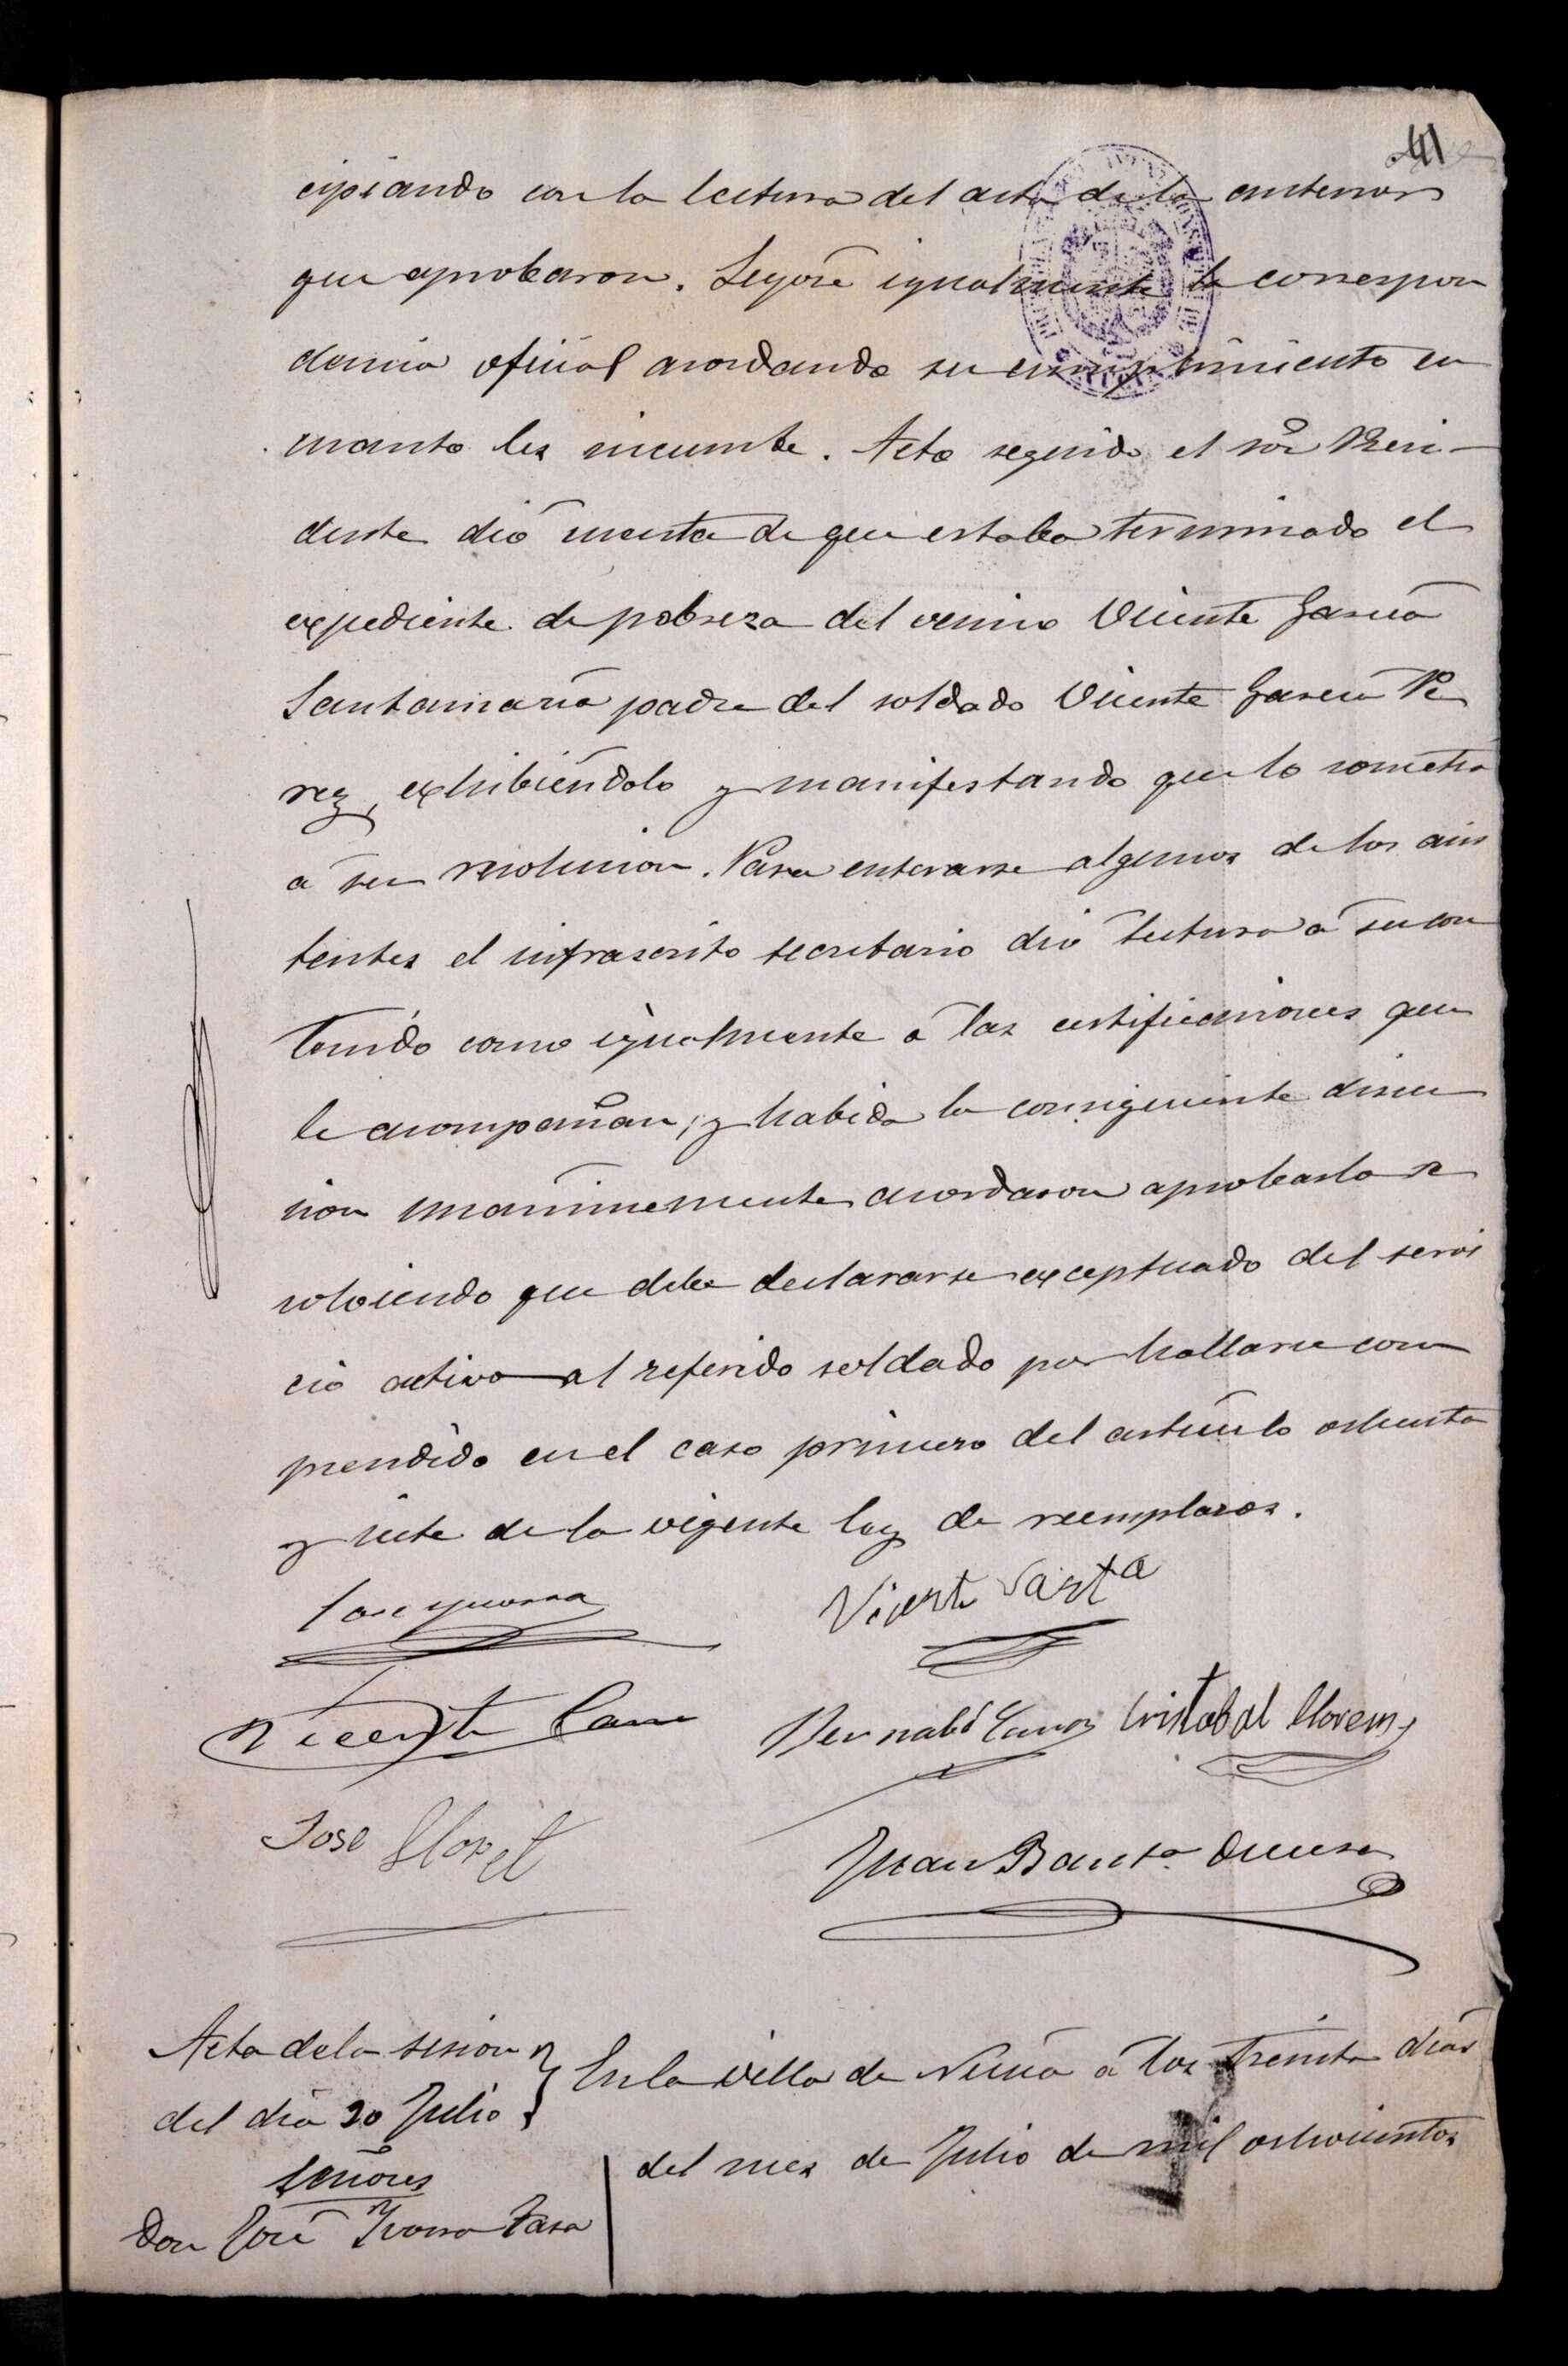 41
cipiando con la lectura del acta de la anterior
que aprobaron. Leyóse igualmente la correspon
dencia oficial acordando su cumplimiento en
cuanto les incumbe. Acto seguido el sor Presi-
dente dió cuenta de que estaba terminado el
expediente de pobreza del vecino Vicente García
Santamaría padre del soldado Vicente García Pe
rez, exhibiéndolo y manifestando que lo sometía
á su resolucion. Para enterarse algunos de los asis
tentes el infrascrito secretario dió lectura á su con
tenido como igualmente á las certificaciones que
le acompañan; y habida la consiguiente discu
sion unánimemente acordaron aprobarlo re
solviendo que debe declararse exceptuado del servi
cio activo al referido soldado por hallarse com
prendido en el caso primero del artículo ochenta
y siete de la vigente ley de reemplazos.
Jose Yvorra
Vicente
Vicente Cano
Bernabé Cano Cristobal Llorens
Jose Lloret
Juan Bauta
Acta de la sesion
del dia 30 Julio
Señores
Don José Yvorra
En la villa de Nucía á los treinta días
del mes de Julio de mil ochocientos